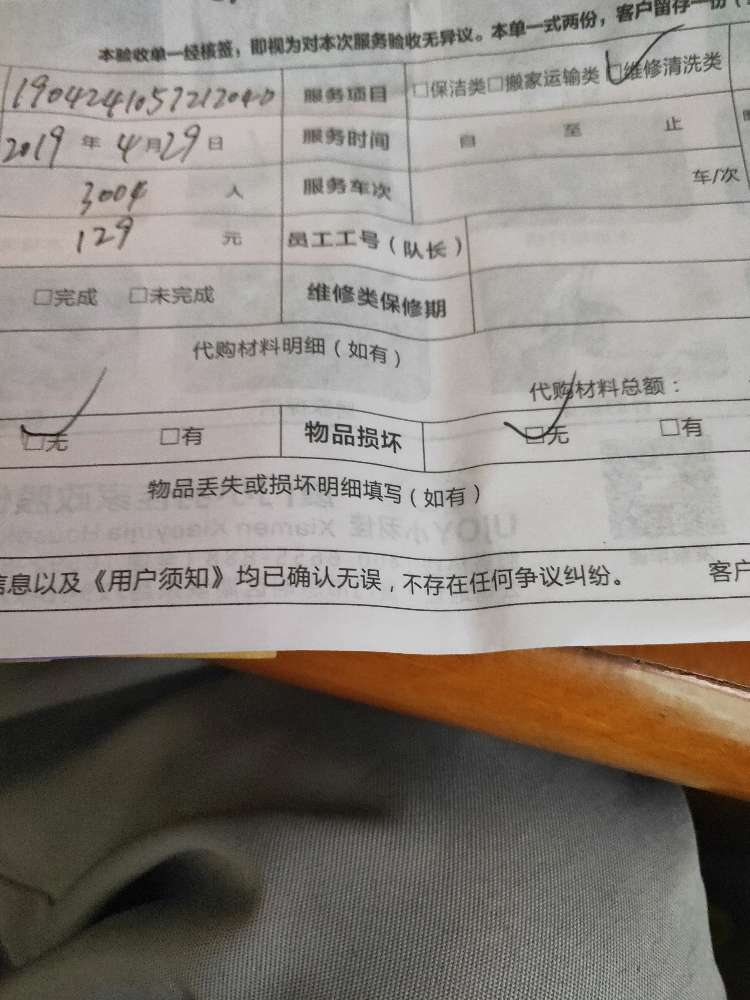 本验收单一经核签，即视为对本次服务验收无异议。本单一式两份，客户留存一份（
服务项目 □保洁类□搬家运输类□维修清洗类
2019年4月29日 服务时间 自 至 止
3004 人 服务车次 车/次
129 元 员工工号（队长）
□完成 □未完成 维修类保修期
代购材料明细（如有）
代购材料总额：
□无 □有 物品损坏 □无 □有
物品丢失或损坏明细填写（如有）
信息以及《用户须知》均已确认无误，不存在任何争议纠纷。 客户